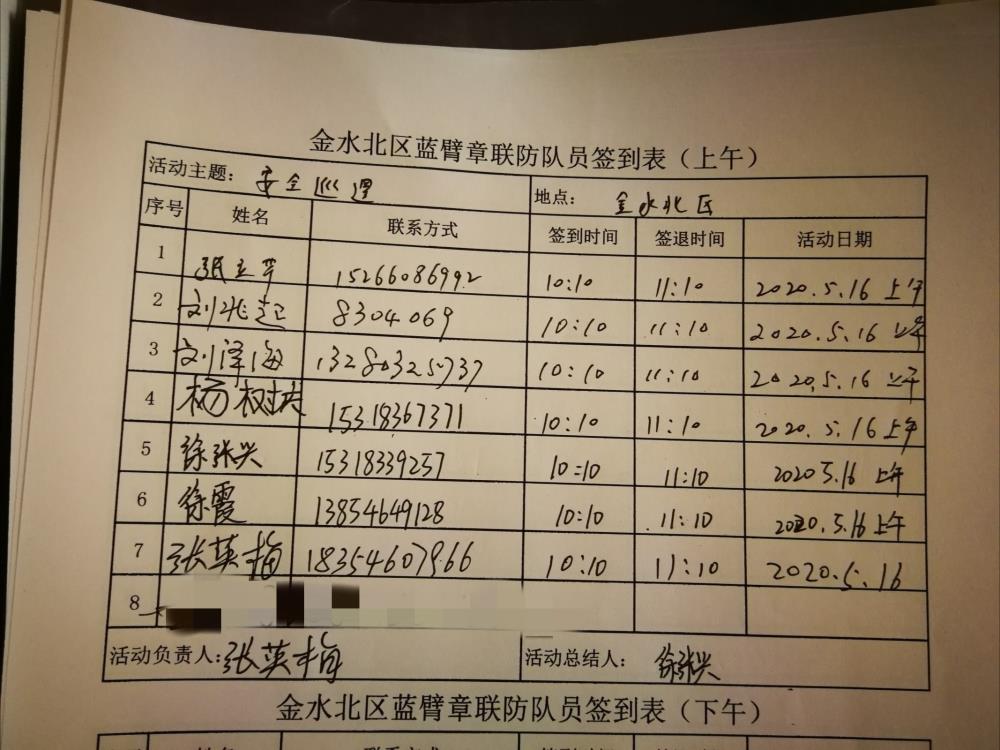 金水北区蓝臂章联防队员签到表（上午）
活动主题： 安全巡逻 地点： 金水北区
序号 姓名 联系方式 签到时间 签退时间 活动日期
1 张立苹 15266086992 10:10 11:10 2020.5.16 上午
2 刘兆起 8304069 10:10 11:10 2020.5.16 上午
3 刘泽海 13280325737 10:10 11:10 2020.5.16 上午
4 杨树 15318367371 10:10 11:10 2020.5.16 上午
5 徐张兴 15318339257 10:10 11:10 2020 5.16 上午
6 徐霞 13854649128 10:10 11:10 2020.5.16 上午
7 张英梅 18354607966 10:10 11:10 2020.5.16
8
活动负责人：张英梅 活动总结人： 徐张兴
金水北区蓝臂章联防队员签到表（下午）